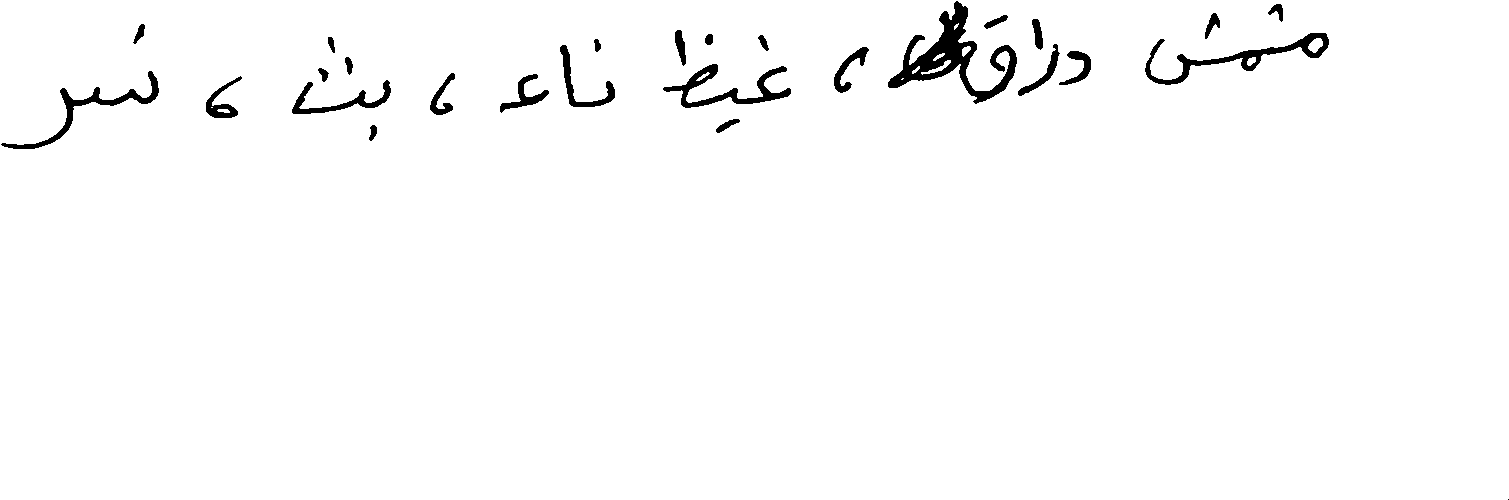 مشمش دراق، غيظ ناء، بث، نسر